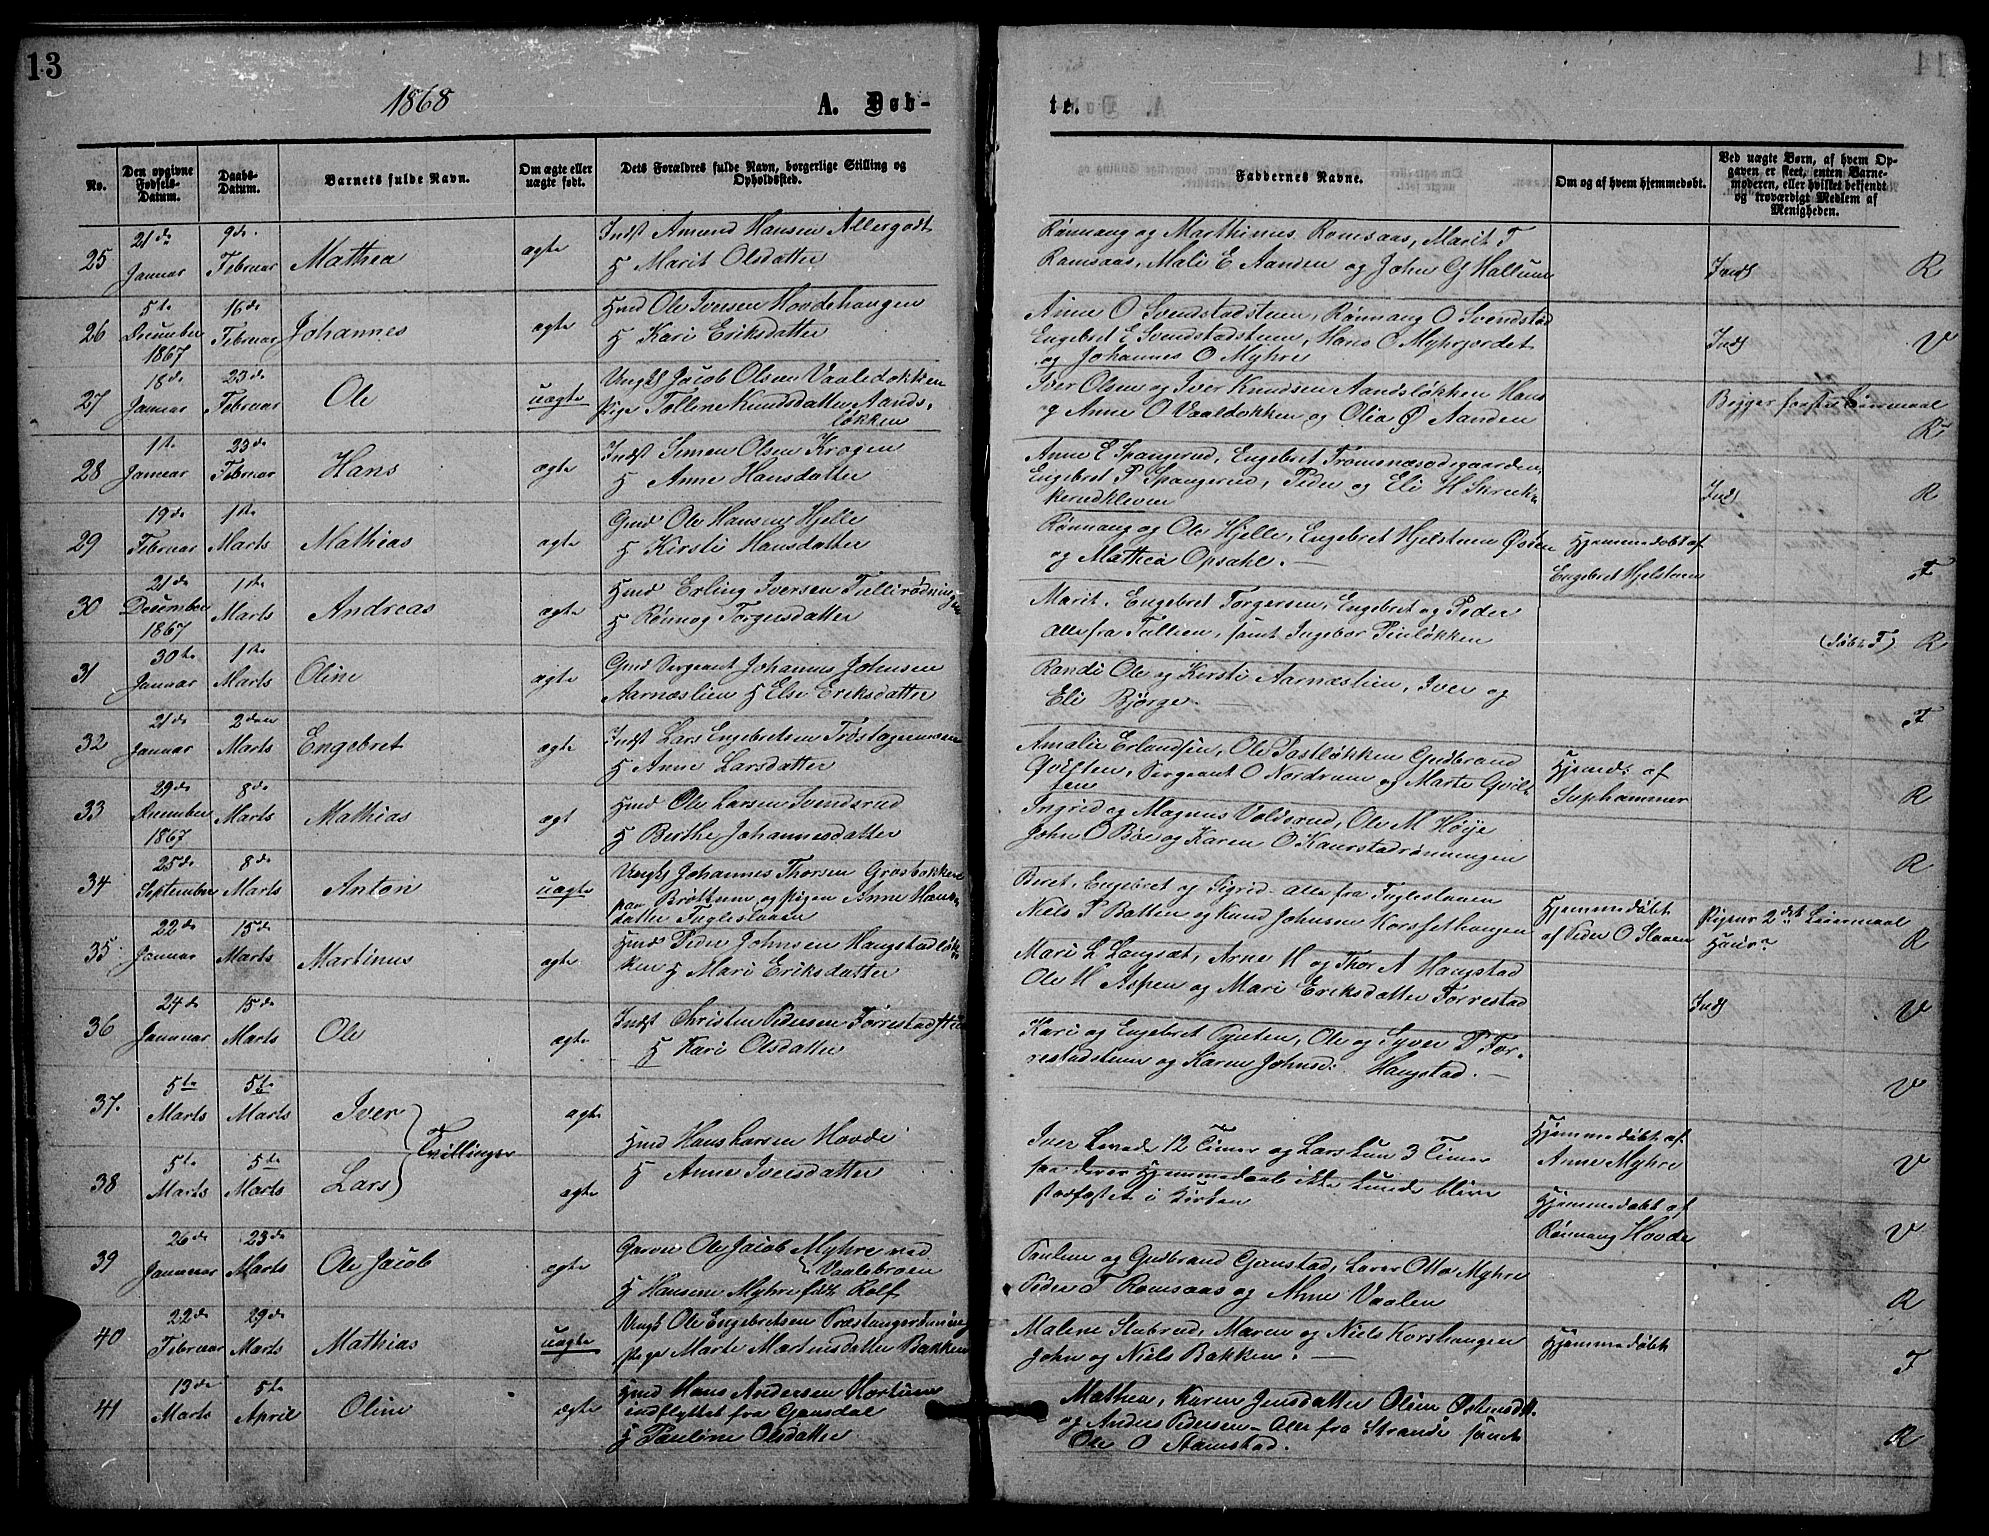 13
1868
A. Døb-
te.
No.
Den opgivne Fødsels-Datum.
Daabs-Datum.
Barnets fulde Navn.
Om ægte eller uægte født.
Dets Forældres fulde Navn, borgerlige Stilling og Opholdssted.
Faddernes Navne.
Om og af hvem hjemmedøbt.
Ved uægte Børn, af hvem Opgaven er skeet, enten Barnemoderen, eller hvilket bekjendt og troværdigt Medlem af Menigheden.
25 21de Januar 9de Februar Mathea ægte Indst Amund Hansen Allergodt
H Marit Olsdatter
Rønnaug og Marthinus Romsaas, Marit T
Romsaas, Mali E Aanden og John G Hallum Inds R
26 5te December 1867 16de Februar Johannes ægte Hmd Ole Iversen Hovdehaugen
H Kari Eriksdatter
Anne O Svendstadstuen, Rønnaug O Svendstad
Engebret E Svendstadstuen, Hans O Myhrjordet
og Johannes O Myhre Inds V
27 18de Januar 23de Februar Ole uægte Ungk Jacob Olsen Vaaledokken
Pige Tollene Knudsdatter Aands-
løkken
Iver Olsen og Iver Knudsen Aandsløkken Hans
og Anne O Vaaldokken og Olia Ø Aanden
Begges første Leiermaal R
28 1te Januar 23de Februar Hans ægte Indst Simen Olsen Krogen
H Anne Hansdatter
Anne E Spangerud, Engebret Tromsnæsødegaarden,
Engebret P Spangerud, Peder og Eli H Skruk-
kerudkleven Inds R
29 19de Februar 1te Marts Mathias ægte Gmd Ole Hansen Hjelle
H Kirsti Hansdatter
Rønnaug og Ole Hjelle, Engebret Hjelstuen Østen
og Mathea Opsahl.
Hjemmedøbt af
Engebret Hjelstuen F
30 21de December 1867 1te Marts Andreas ægte Hmd Erling Iversen Tullirødningen
H Rønnog Torgersdatter
Marit, Engebret Torgersen, Engebret og Peder
alle fra Tullien, samt Ingebor Pinløkken R
31 30te Januar 1te Marts Oline ægte Gmd Sergeant Johannes Johnsen
Aarnæslien H Else Eriksdatter
Randi Ole og Kirsti Aarnæslien, Iver og
Eli Bjørge. F
32 21de Januar 2den Marts Engebret ægte Indst Lars Engebretsen
H Anne Larsdatter
Amalie Erlandsen, Ole Pastløkken Gudbrand
Qvilten, Sergeant O Nordrum og Marte Qvil-
ten
Hjemd: af
Sephammer R
33 29de December 1867 8de Marts Mathias ægt Hmd Ole Larsen Svendsrud
H Berthe Johannesdatter
Ingrid og Magnus Volderud, Ole M Høije
John O Bøe og Karen O Kaurstadrønningen R
34 25de September 8de Marts Anton uægte Ungk Johannes Thorsen Grøsbakken
paa Brøttum og pigen Anne Hans-
datter Fugleslaaen
Beret, Engebret og Sigrid alle fra Fugleslaaen
Niels P Batten og Knud Johnsen Korsfethaugen
Hjemmedøbt
af Peder O Slaaen
Pigens 2det Leiermaal
Hans R
35. 22de Januar 15de Marts Martinus ægte Hmd Peder Johnsen Haugstadløk-
ken H Mari Eriksdatter
Mari L Langsæt, Arne H og Thor A Haugstad
Ole H Aspen og Mari Eriksdatter Torrestad Inds V
36 24de Januar 15de Marts Ole ægte Indst Christen Pedersen Torrestadstuen
H Kari Olsdatter
Kari og Engebret Pynten, Ole og Syver P Tor-
restadstuen og Karen Johnsd: Haugstad. V
37. 5te Marts 5te Marts Iver ægte
Tvillinger
Hmd Hans Larsen Hovde
H Anne Iversdatter
Iver levede 12 Timer og Lars kun 3 Timer
saa deres Hjemmedaab ikke kunde blive
stadfæstet i Kirken
Hjemmedøbt af
Anne Myhre V
38 5te Marts 5te Marts Lars ægte
Hjemmedøbt af
Rønnaug Hovde V
39 26de Januar 23de Marts Ole Jacob ægte Garver Ole Jacob Myhre ved
Vaalebroen
H Hansine Myhre født Rolf
Pauline og Gudbrand Gjæstad, Lærer Otto Myhre
Peder T Romsaas og Arne Vaalen R
40 22de Februar 29de Marts Mathias uægte Ungk Ole Engebretsen
Pige Marte Martinusdatter Bakken
Malene Stubrud, Maren og Niels Korshaugen
John og Niels Bakken.
Hjemmedøbt F
41 13de Marts 5te April Oline ægte Hmd Hans Andersen Hortum
indflyttet fra Gausdal
H Pauline Olsdatter
Mathea, Karen Jensdatter Oline Østensdt.
og Anders Pedersen - Alle fra Strande samt
Ole O Stamstad. R